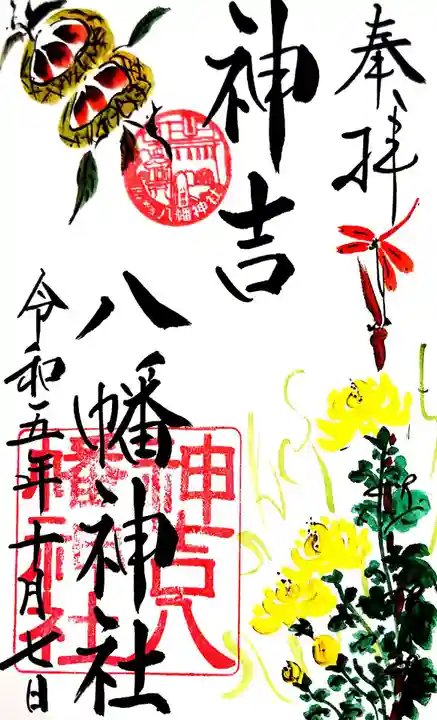 奉拝
神吉
八幡神社
令和五年十月七日
神吉八
幡神社
八幡神社